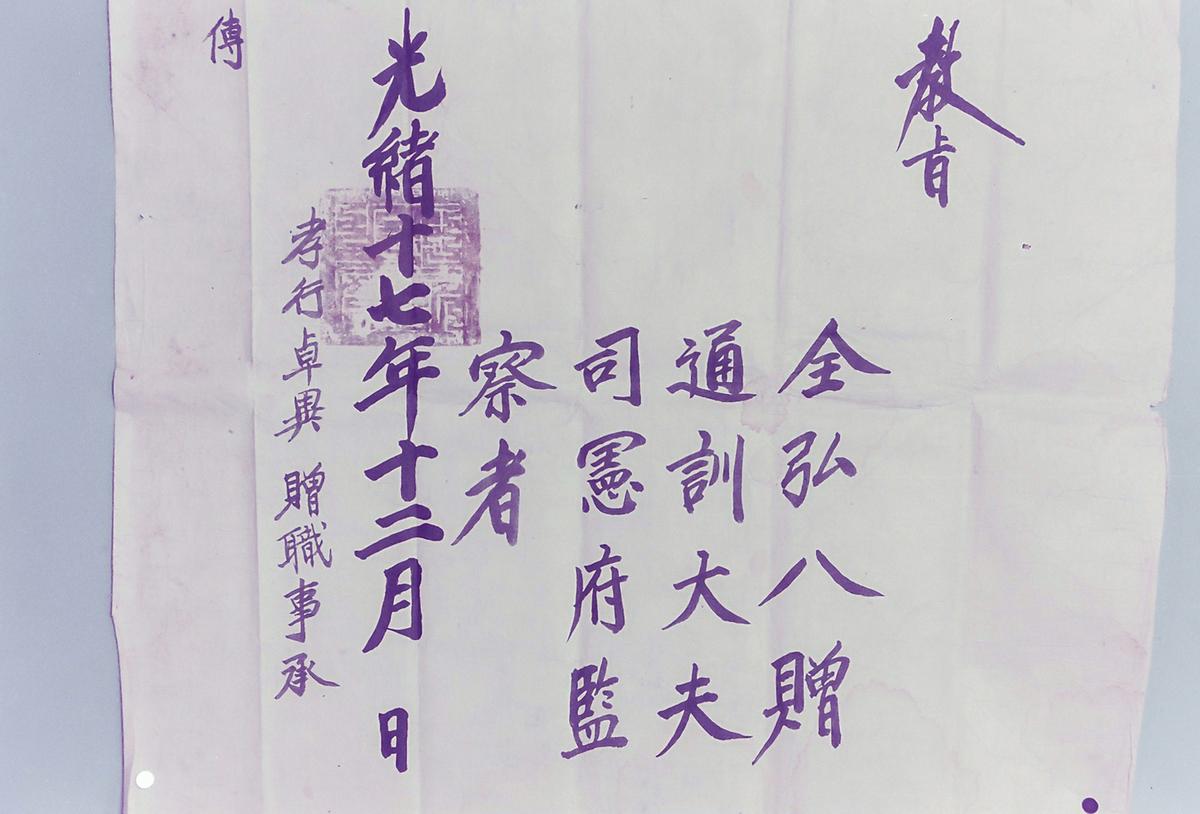 教旨
全弘八贈
通訓大夫
司憲府監
察者
光緒十七年十二月 日
孝行卓異 贈職事承
傳